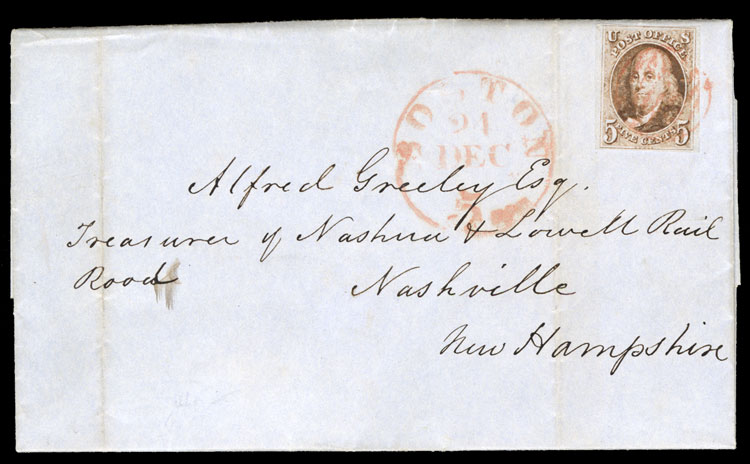 U S
POST OFFICE
5 FIVE CENTS 5
BOSTON
24
DEC
Alfred Greeley Esq.
Treasurer of Nashua & Lowell Rail
Road
Nashville
New Hampshire